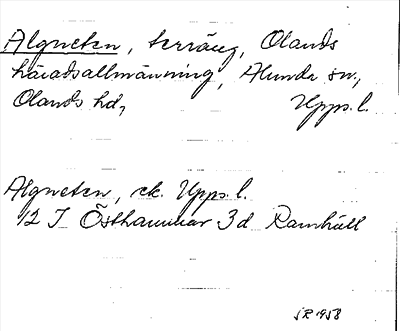 Algneten, terräng, Olands
häradsallmänning, Alunda sn,
Olands hd, Upps. l.
Algneten, ek. Upps. l.
12 I Östhammar 3d Ramhäll
SR 1958